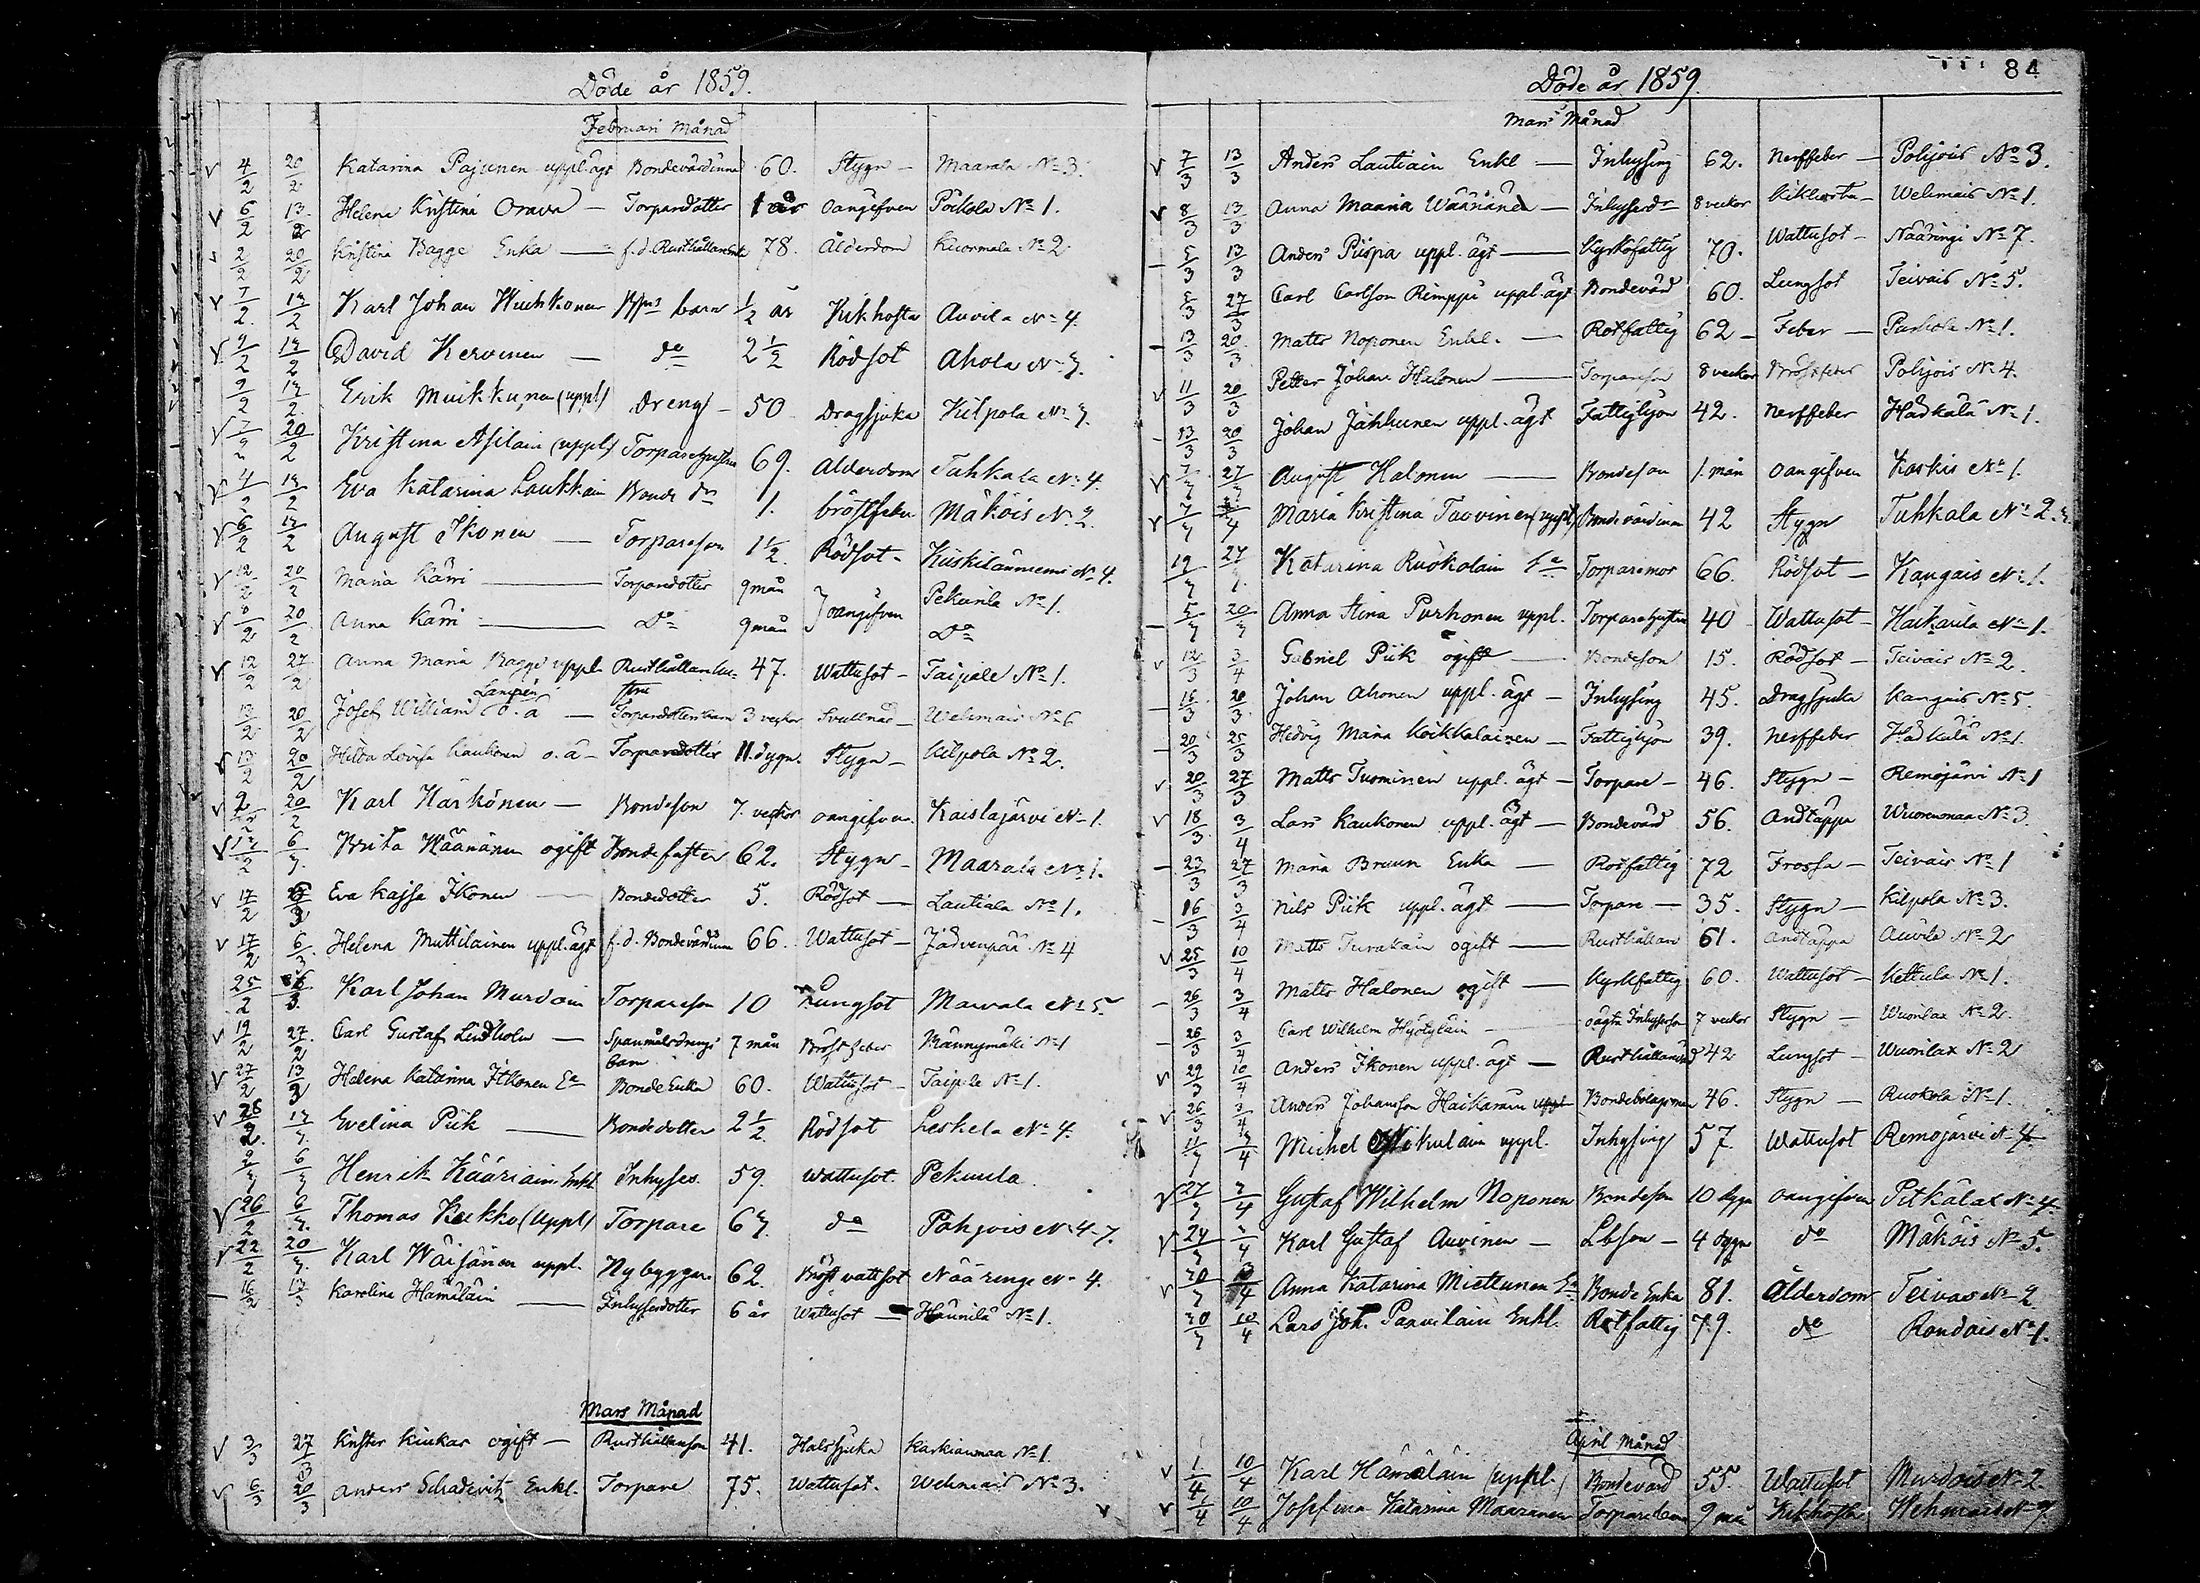 Döde år 1859.
Februari Månad
v 4/2 20/2 Katarina Pajunen uppl. ägt Bondevärdinna 60. Stygn - Maarala No 3.
v 6/2 13/2 Helena Kristina Orava - Torparedotter 1 år oangifven Poikola No 1.
2/2 20/2 Kristina Bagge Enka - f.d. 78. Ålderdom Kuormala No 2
v 7/2 13/2 Karl Johan Huuhkonen barn 1/2 år Kikhosta Auvila No 4.
v 9/2 13/2 David Kervinen - do 2 1/2 Rödsot Ahola No 3.
9/2 13/2 Erik Muikkunen (uppl) Dreng - 50 Dragsjuka Kilpola No 3.
v 7/2 20/2 Kristina Asilain (uppl) Torparehustru 69. Ålderdom Tuhkala No 4.
v 4/2 13/2 Eva Katarina Laukkain Bonde dr 1. bröstfeber Mäkois No 2.
v 6/2 13/2 August Ikonen - Torpareson 1 1/2. Rödsot - Kuskilanniemi No 4.
v 12/2 20/2 Maria Kärri - Torparedotter 9 mån } oangifven Pekurila No 1.
v 20/2 Anna Kärri - Do 9 mån Do
v 12/2 27/2 Anna Maria Bagge uppl. Rusthållarehustru 47. Wattusot - Taipale No 1.
13/2 20/2 Josef William Lampén o.ä - Torparedotterbarn 3 veckor Svullnad - Wehmais No 6
v 13/2 20/2 Hilda Lovisa Kaukonen o.ä - Torparedotter 11. dygn. Stygn - Kilpola No 2.
v 9/2 20/2 Karl Härkönen - Bondeson 7. veckor oangifven. Kaislajärvi No 1.
v 13/2 6/3 Brita Wäänänen ogift Bondesyster 62. Stygn - Maarala No 1.
v 17/2 6/3 Eva Kajsa Ikonen Bondedotter 5. Rödsot - Lautiala No 1.
v 17/2 6/3 Helena Muttilainen uppl. ägt f.d. Bondevärdinna 66 Wattusot - Järvenpää No 4
25/2 6/3 Karl Johan Murdoin Torpareson 10 Lungsot Marvala No 5
v 19/2 27/2 Carl Gustaf Lindholm - barn 7 mån Bröstfeber Männynmäki No 1
v 27/2 13/3 Helena Katarina Itkonen Ea Bonde Enka 60. Wattusot - Taipale No 1.
v 28/2 13/3 Evelina Piik - Bondedotter 2 1/2 Rödsot Leskelä No 4.
2/3 6/3 Henrik Kääriäin Enkl. Inhyses. 59. Wattusot. Pekurila.
v 26/2 6/3 Thomas Kukko (Uppl) Torpare 63. do Pohjois No 4
v 22/2 20/3 Karl Wäisänen uppl. Nybyggare 62. Bröst vattsot Nääringe No 4.
- 16/2 13/3 Karolina Hämäläin - Inhysesdotter 6 år Wattusot - Hännilä No 1.
Mars Månad
v 3/3 27/3 Krister Kiukas ogift - Rusthållareson 41. Halssjuka Karkiaumaa No 1.
v 6/3 20/3 Anders Schadevitz Enkl. Torpare 75. Wattusot. Wehmais No 3.
84
Döde år 1859.
Mars Månad
v 7/3 13/3 Anders Lautiain Enkl - Inhysing 62. Nerffeber - Pohjois No 3.
v 8/3 13/3 Anna Maaria Wäänänen - Inhysesdr 8 veckor Kikhosta - Wehmais No 1.
- 5/3 13/3 Anders Piispa uppl. ägt - Kyrkofattig 70. Wattusot - Nääringi No 7.
5/3 27/3 Carl Carlson Rimppi uppl. ägt Bondevärd 60. Lungsot Teivais No 5.
- 13/3 20/3 Matts Noponen Enkl. - Rotfattig 62 - Feber - Purhola No 1.
v 11/3 20/3 Petter Johan Halonen - Torpareson 8 veckor Bröstfeber Pohjois No 4.
- 13/3 20/3 Johan Jäkkunen uppl. ägt Fattighjon 42. Nerffeber Haekälä No 1.
v 7/3 27/3 August Halonen - Bondeson 1. mån oangifven Koskis No 1.
v 7/3 3/4 Maria Kristina Tuovinen (uppl) Bondevärdinna 42 Stygn Tuhkala No 2.
19/3 27/3 Katarina Ruokolain Ea Torparemor 66. Rödsot - Kangais No 1.
- 5/3 20/3 Anna Stina Purhonen uppl. Torparehustru 40 Wattusot - Haikarila No 1.
v 12/3 3/4 Gabriel Piik ogift - Bondeson 15. Rödsot - Teivais No 2.
- 15/3 20/3 Johan Ahonen uppl. ägt - Inhysing 45. Dragsjuka Kangais No 5.
- 20/3 25/3 Hedvig Maria Koikkalainen - Fattighjon 39. Nerffeber Haekälä No 1.
v 20/3 27/3 Matts Tuominen uppl. ägt - Torpare - 46. Stygn - Remojärvi No 1
v 18/3 3/4 Lars Kaukonen uppl. ägt - Bondevärd 56. Andtäppa Wuorenmaa No 3.
- 23/3 27/3 Maria Bruun Enka - Rotfattig 72 Frossa - Teivais No 1
- 16/3 3/4 Nils Piik uppl. ägt - Torpare - 35. Stygn - Kilpola No 3.
v 25/3 10/4 Matts Turakain ogift - Rusthållare 61. Andtäppa Auvila No 2
- 26/3 3/4 Matts Halonen ogift - Kyrkfattig 60. Wattusot - Kottila No 1.
- 26/3 3/4 Carl Wilhelm Hyötyläin - oägta Inhysesson 7 veckor Stygn - Wuorilax No 2
v 29/3 10/4 Anders Ikonen uppl. ägt - Rusthållarevärd 42 Lungsot - Wuorilax No 2
v 26/3 3/4 Anders Johansson Haikarain uppl Bondebolagsman 46. Stygn - Ruokola No 1.
11/3 3/4 Michel Nikulain uppl. Inhysing 57 Wattusot Remojärvi No 4
v 27/3 3/4 Gustaf Wilhelm Noponen Bondeson 10 dygn oangifven Pitkälax No 4
v 24/3 3/4 Karl Gustaf Auvinen - Lbson - 4 dygn do Mäkois No 5.
v 30/3 10/4 Anna Katarina Miettunen Ea Bonde Enka 81. Ålderdom Teivas No 2
30/3 10/4 Lars Joh. Parvilain Enkl. Rotfattig 79. do Rondais No 1.
April Månad
v 1/4 10/4 Karl Hämäläin (uppl.) Bondevärd 55. Wattusot Murdois No 2.
v 4/4 10/4 Josefina Katarina Maaranen 9 må Kikhosta Wehmais No 9